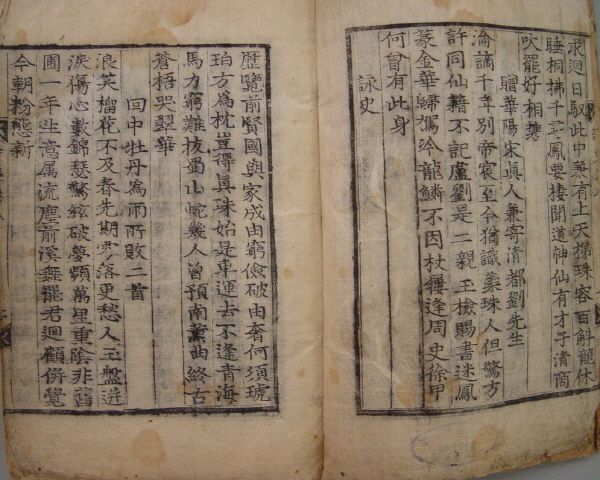 求迴日馭此中兼有上天梯珠容百斛龍休
睡桐拂千尋鳳要棲聞道神仙有才子清商
吹罷好相携
贈華陽宋眞人兼寄清都劉先生
淪謫千年別帝宸至今猶識蘂珠人但驚方
許同仙籍不記盧劉是二親玉檢賜書迷鳳
篆金華歸駕冷龍鱗不因杖屨逢周史徐甲
何曾有此身
詠史
歷覽前賢國與家成由窮儉破由奢何須琥
珀方爲枕豈得眞珠始是車運去不逢青海
馬力窮難拔蜀山蛇幾人曾預南薰曲終古
蒼梧哭翠華
回中牡丹爲雨所敗二首
浪笑榴花不及春先期零落更愁人玉盤迸
淚傷心數錦瑟驚絃破夢頻萬里重陰非舊
圃一年生意属流塵前溪舞罷君迴顧倂覺
今朝粉態新